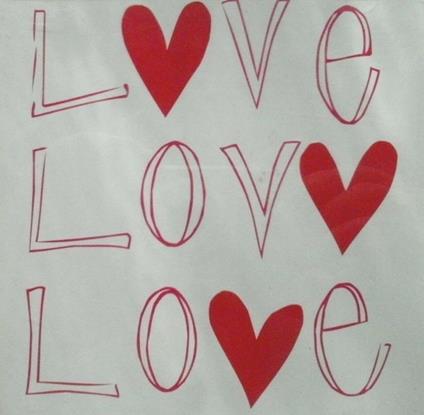 L❤ve
Lov❤
Lo❤e